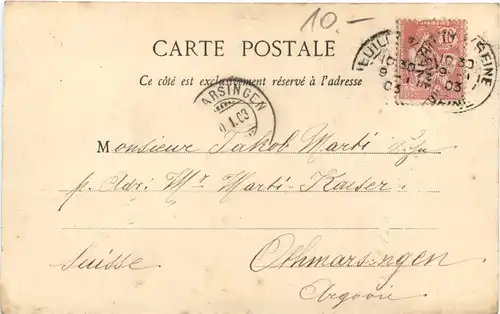 10.-
CARTE POSTALE
Ce côté est exclusivement réservé à l'adresse
NEUILLY SEINE
10 30
9 1
03
SEINE
ARSINGEN
Monsieur Jakob Marti
p. Adr: Mr Marti-Kaeser
Suisse. Othmarsingen
Argovie